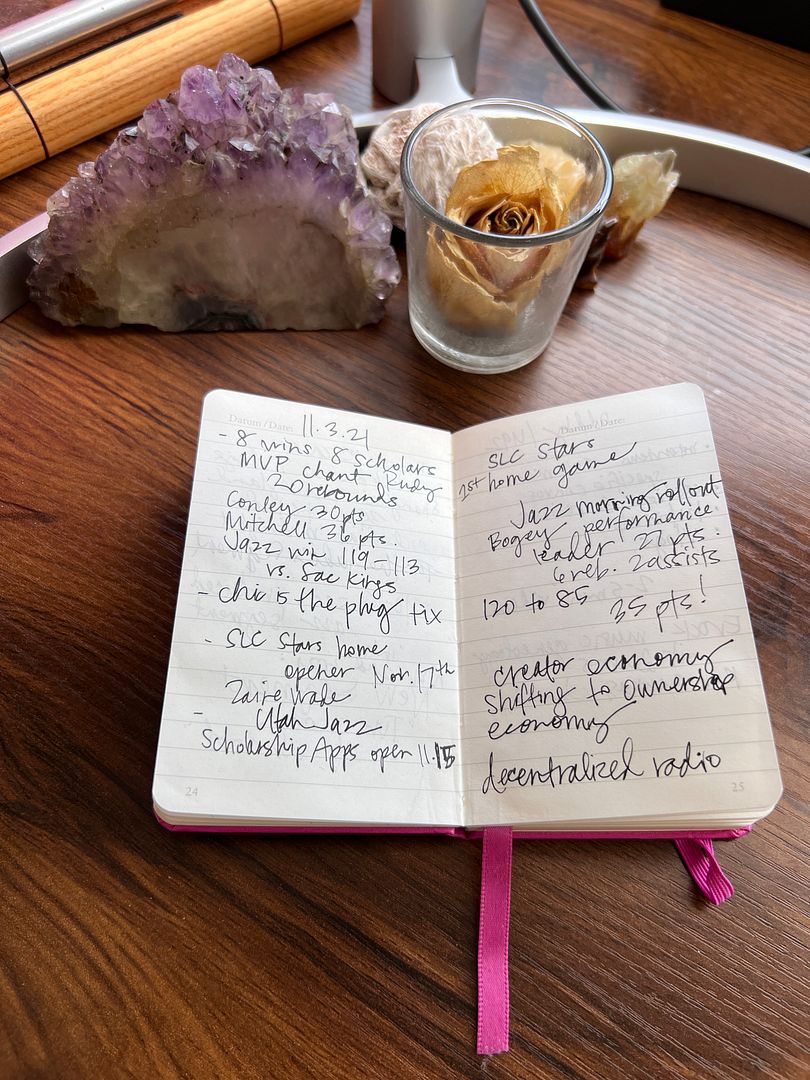 Datum / Date: 11.3.21
- 8 wins 8 scholars
MVP chant Rudy
20 rebounds
Conley 30 pts
Mitchell 36 pts.
Jazz win 119-113
vs. Sac Kings
- chic is the plug tix
- SLC Stars home
opener Nov. 17th
Zaire Wade
- Utah Jazz
Scholarship Apps open 11.15
24
Datum / Date:
SLC Stars
1st home game
Jazz morning rollout
Bogey performance
leader 27 pts.
6 reb. 2 assists
120 to 85
35 pts!
creator economy
shifting to ownership
economy
decentralized radio
25